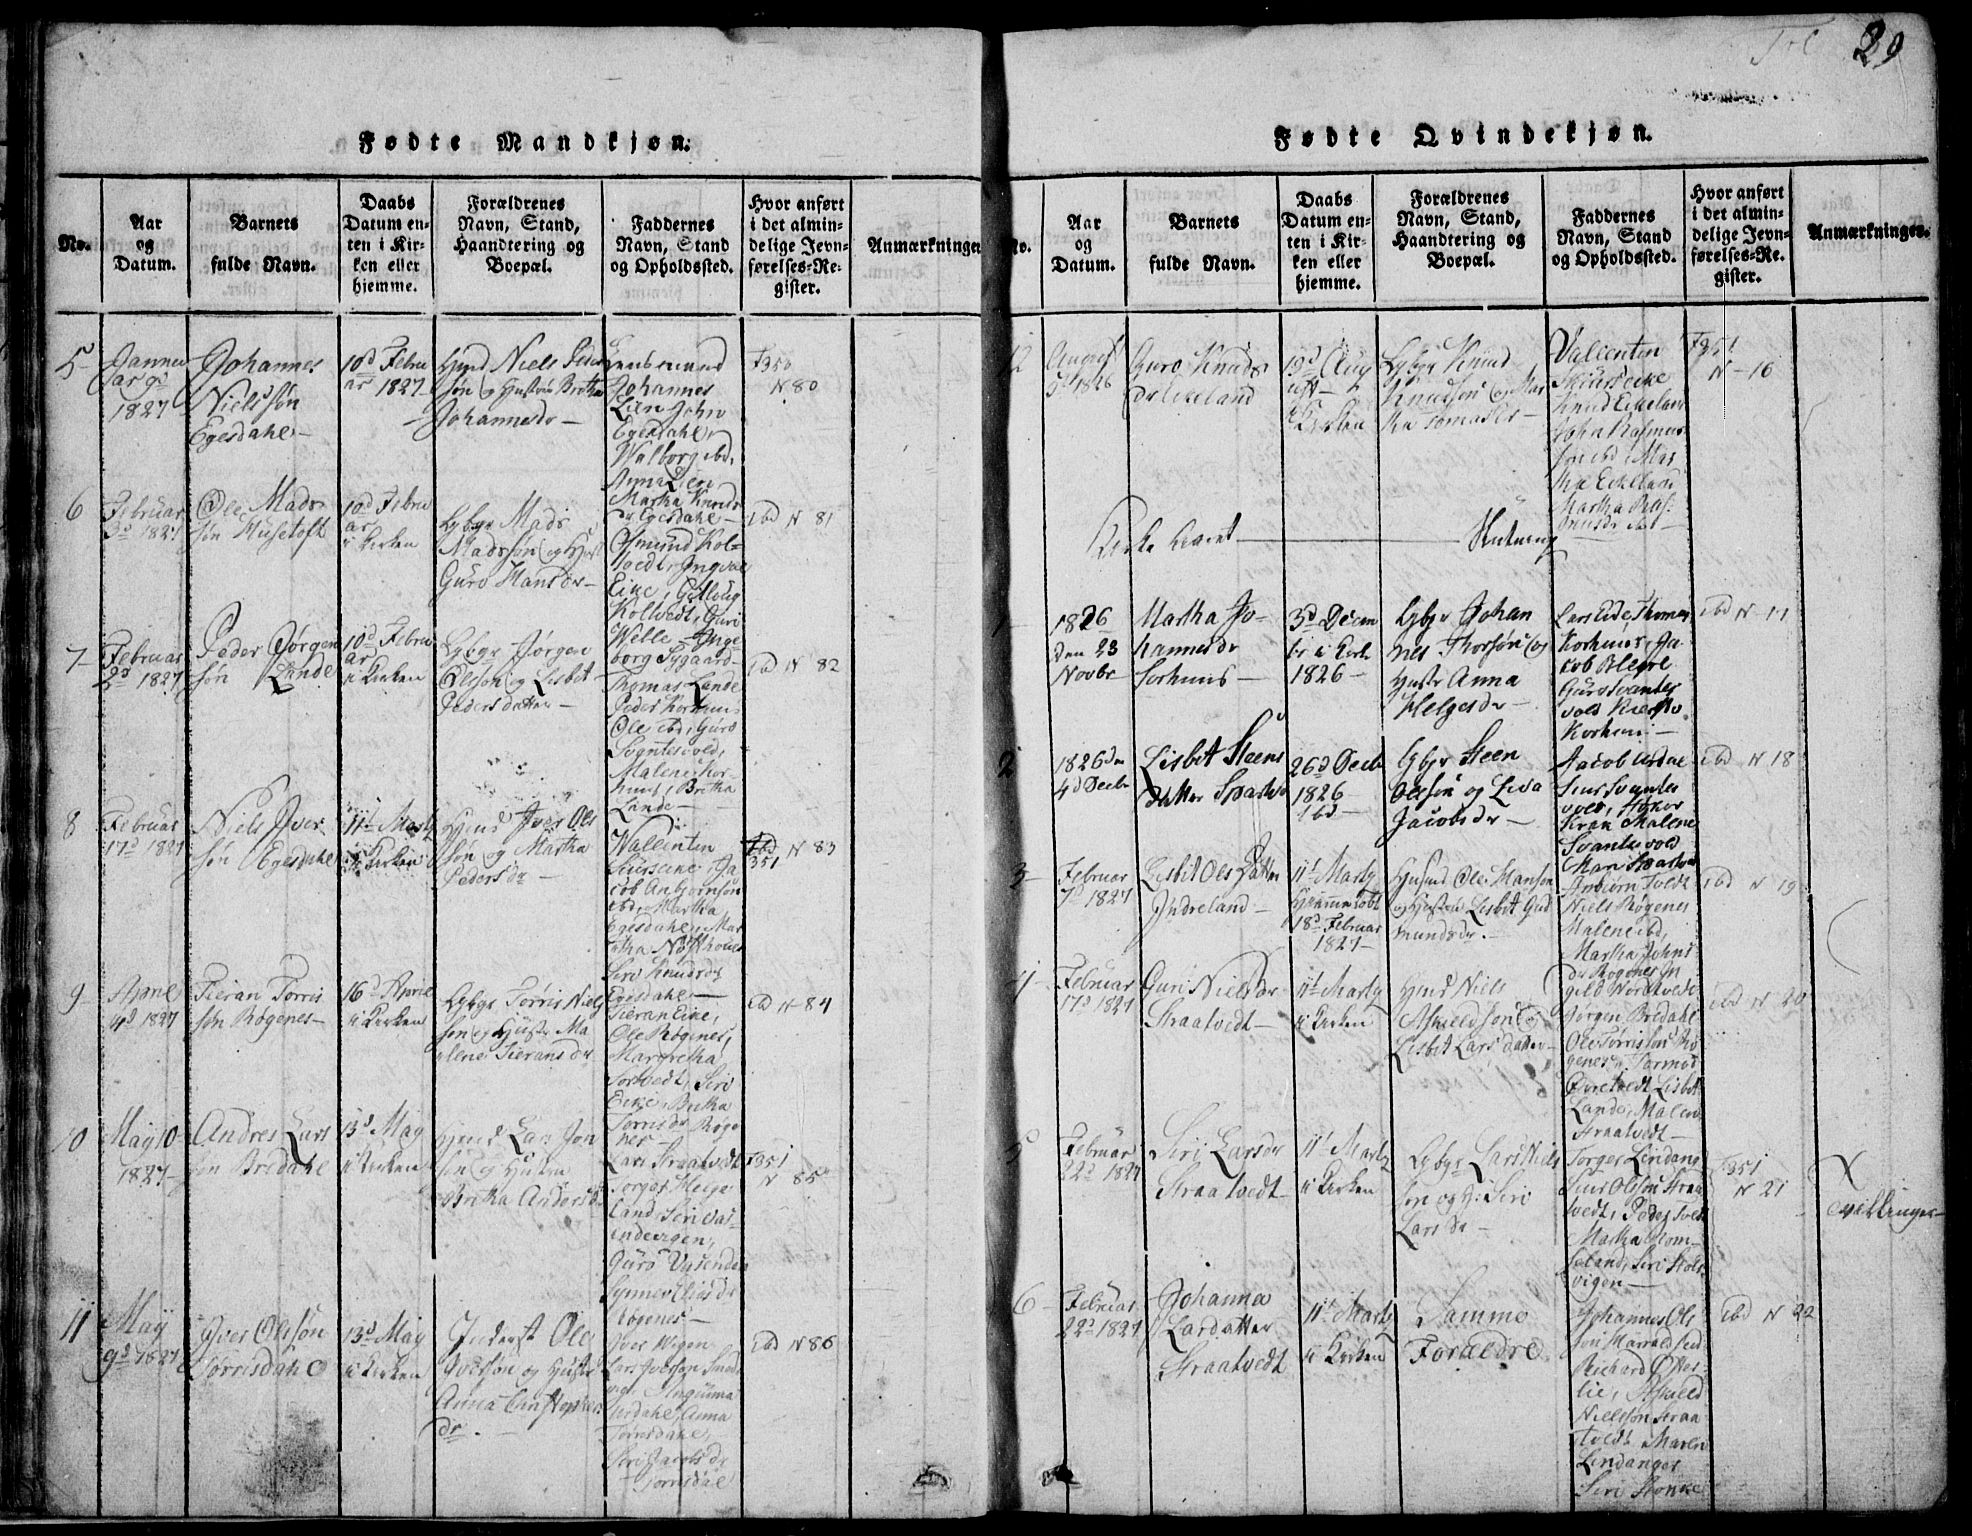 Fol 29
Fødte Mandkjøn.
No.
Aar
og
Datum.
Barnets
fulde Navn.
Daabs
Datum en-
ten i Kir-
ken eller
hjemme.
Forældrenes
Navn, Stand,
Haandtering og
Boepæl.
Faddernes
Navn, Stand
og Opholdssted.
Hvor anført
i det almin-
delige Jevn-
førelses-Re-
gister.
Anmærkninger
5
Janua
ar 9d
1827
Johannes
Nielssøn
Egesdahl
10d Febru
ar 1827
Niels Peder
søn og Hustrue Britha
Johannesdr
Johannes
Lien John
Egesdahl,
Walborg ibd,
Anna Lien
Martha Knuds
dr Egesdahl
F350
N 80
6
Februar
3d 1827
Ole Mads
søn Husetoft
10d Febru
ar
i Kirken
Gbgr Mads
Madssøn og Hust
Guro Hansdr
Osmund Kol-
tvedt, Ingval
Eike, Gitlaug
Koltvedt, Guri
Welle, Inge
borg Sygaard
ibd N 81
7
Februar
2d 1827
Peder Jørgen
søn Lande
10d Febru
ar
i Kirken
Gbgr Jørgen
Olsøn og Lisbet
Pedersdatter
Thomas Lande
Peder Korhuus
Ole ibd, Guro
Svantesvold,
Malene Kor-
huus, Britha
Lande
ibd N 82
8
Februar
17d 1827
Niels Iver
søn Egesdahl
11t Marty
i Kirken
Iver Ols
søn og Martha
Pedersdr
Wallentin
Skiurseike, Ja
cob Anbjørnsøn
ibd, Martha
Egesdahl, Mar
tha
Siri Knudsdr
Egesdahl
ibd N 83
351
9
Aprile
4d 1827
Tieran Torris
søn Røgenes
16d Aprile
i Kirken
Gbgr Torris Niels
søn og Hustr Ma
lene Tieransdr
Tieran Eike,
Ole Røgenes,
Margretha
Tortvedt, Siri
Eike, Britha
Torrisdr Røge
nes
ibd N 84
10
May 10
1827
Andres Lars
søn Bredahl
13d May
i Kirken
Lars Jon
søn og Hustru
Britha Andersdr
Lars Straatvedt
Torger Helge
land, Siri Vas-
indvigen,
Guro Vasenden
Synnev Eliasdr
Røgenes
F351
N 85
11
May
9d 1827
Iver Olssøn
Torrisdahl
13d May
i Kirken
Inderst Ole
Iverssøn og Hustr
Anna Christophers
dr.
Iver Wigen
Lars Iverssøn
Anna
Torrisdahl,
Siri Jacobsdr
Torrisdal
ibd N 86
Fødte Qvindekjøn.
No.
Aar
og
Datum.
Barnets
fulde Navn.
Daabs
Datum en-
ten i Kir-
ken eller
hjemme.
Forældrenes
Navn, Stand,
Haandtering og
Boepæl.
Faddernes
Navn, Stand
og Opholdssted.
Hvor anført
i det almin-
delige Jevn-
førelses-Re-
gister.
Anmærkninger.
12
August
1826
Guro Knuds
dr Eikeland
19d Aug
ust
i Kirken
Gbgr Knud
Knudsøn og Mar
tha Tomasdr
Valientin
Skiurseike
Knud Eikeland
John Rasmus
søn ibd, Mar
tha Eikeland
Martha Ras-
musdr ibd
F351
N 16
Kirke Aaret
Slutning
1
1826
den 23
Novbr
Martha Jo-
hannesdr
Korhuus
3d Decem
br i Kirk
1826
Gbgr Johan
nes Thorsøn og
Hustr Anna
Helgesdr
Lars Eide, Thomas
Korhuus, Ja
cob Blegie
Guro Svantes
vold
Korhuus
ibd N 17
2
1826 den
4d Decbr
Lisbet Steens
datter
26d Decb
1826
ibd
Gbgr Steen
Olssøn og Lisa
Jacobsdr
Jacob
Siur Svantes
vold,
Malene
Svantesvold
Mari
ibd N 18
3
Februar
7d 1827
Lisbet Ols datter
Indreland
11t Marty
Hiemmedøbt
18d Februar
1827
Husmd Ole Hansøn
og Hustrue Lisbet Gud
mundsdr.
Anbiørn Tvedt
Niels Røgenes
Malene ibd,
Martha Johns
dr Røgenes
ibd N 19
4
Februar
17d 1827
Guri Nielsdr
Straatvedt
11t Marty
i Kirken
Niels
Askieldsøn og
Lisbet Larsdatter
Jørgen Bredahl
Ole Torrissøn Rø
genes, Tormod
Øvretvedt, Lisbet
Lande, Malen
Straatvedt
ibd N 20
5
Februar
22d 1827
Siri Larsdr
Straatvedt
11t Marty
i Kirken
Gbgr Lars Niels
søn og H: Siri
Larsdr
Torger Lindans
Siur Olssøn Straa
tvedt, Peder Tvedt
Martha Blom-
seland, Siri Støls-
vigen
F351
N 21
X
Tvillinger
6
Februar
22d 1827
Johanna
Larsdatter
Straatvedt
11t Marty
i Kirken
Samme
Forældre
Johannes Ols
søn
Richard Øster
lie, Askield
Nielssøn Straa
tvedt Maren
Lindanger
Siri
ibd N 22